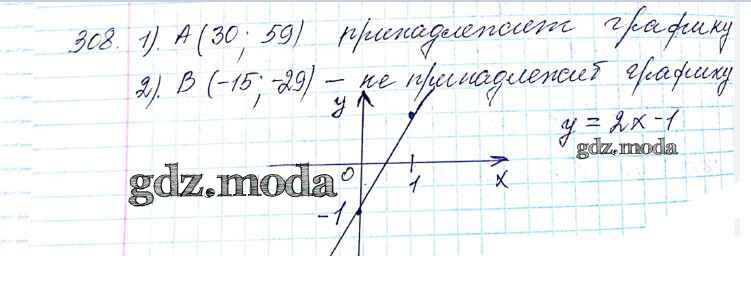 308. 1). А (30; 59) принадлежит графику
2). В (-15; -29) – не принадлежит графику
y
y = 2x-1
gdz.moda
0
1
x
gdz.moda
-1